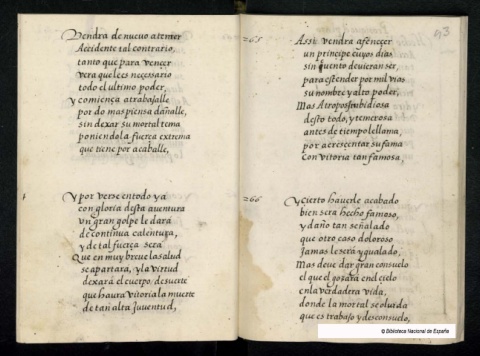 Vendra de nuevo atener
Accidente tal contrario,
tanto que para vençer
vera que le es neçessario
todo el ultimo poder,
y comiença atrabajalle
por do mas piensa dañalle,
sin dexar su mortal tema
poniendo la fuerça extrema
que tiene por acaballe,
Y por verse en todo ya
con gloria desta auentura
un gran golpe le dará
de continua calentura,
y de tal fuerça será
Que en muy breue la salud
se apartara, y la virtud
dexará el cuerpo, de suerte
que haura vitoria la muerte
de tan alta Juuentud,
53
265
Assi vendra afeneçer
un principe cuyos dias
sin cuento deuieran ser,
para estender por mil vias
su nombre y alto poder,
Mas Atropos embidiosa
desto todo, y temerosa
antes de tiempo le llama,
por acresçentar su fama
con vitoria tan famosa,
266
Y çierto hauerle acabado
bien sera hecho famoso,
y daño tan señalado
que otro caso doloroso
Jamas le será ygualado,
Mas deue dar gran consuelo
el que el gozará en el cielo
en la verdadera vida,
donde la mortal se oluida
que es trabajo y desconsuelo,
© Biblioteca Nacional de España